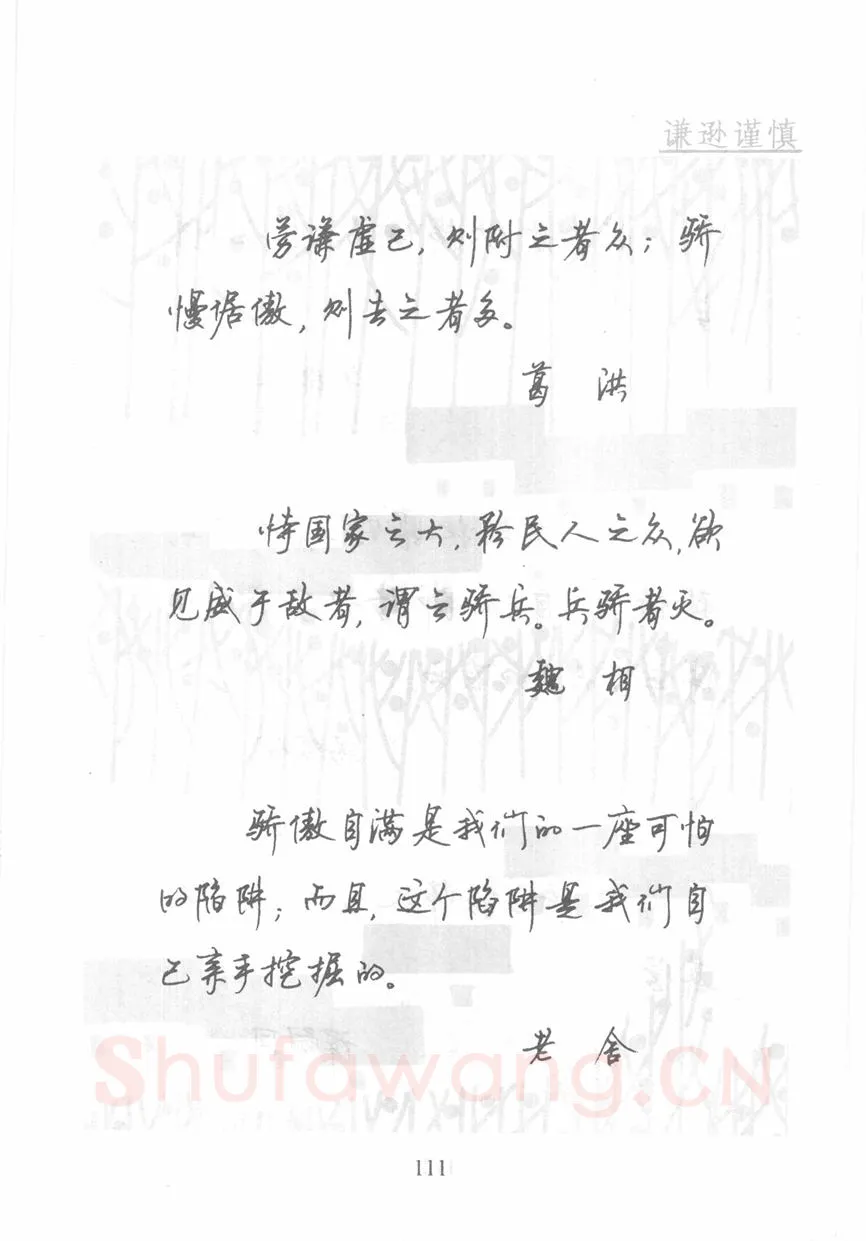 谦逊谨慎
劳谦虚己，则附之者众；骄
慢倨傲，则去之者多。
葛 洪
恃国家之大，矜民人之众，欲
见威于敌者，谓之骄兵。兵骄者灭。
魏 相
骄傲自满是我们的一座可怕
的陷阱；而且，这个陷阱是我们自
己亲手挖掘的。
老 舍
Shufawang.CN
111